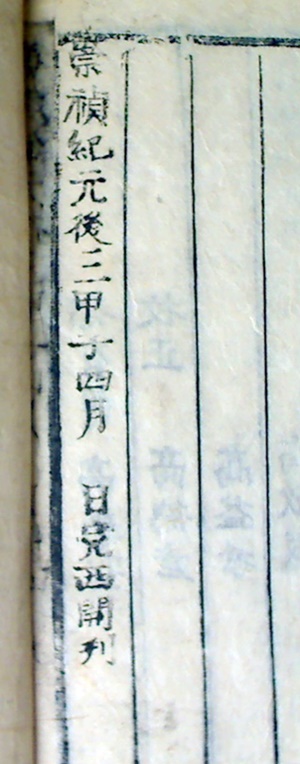 崇禎紀元後三甲子四月　日完西開刋